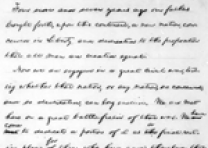 Four score and seven years ago our fathers
brought forth, upon this continent, a new nation, con-
ceived in Liberty, and dedicated to the proposition
that all men are created equal.
Now we are engaged in a great civil war, test-
ing whether that nation, or any nation, so conceived,
and so dedicated, can long endure. We are met
here on a great battlefield of that war. We have
come to dedicate a portion of it as the final rest-
for
place of those who here gave